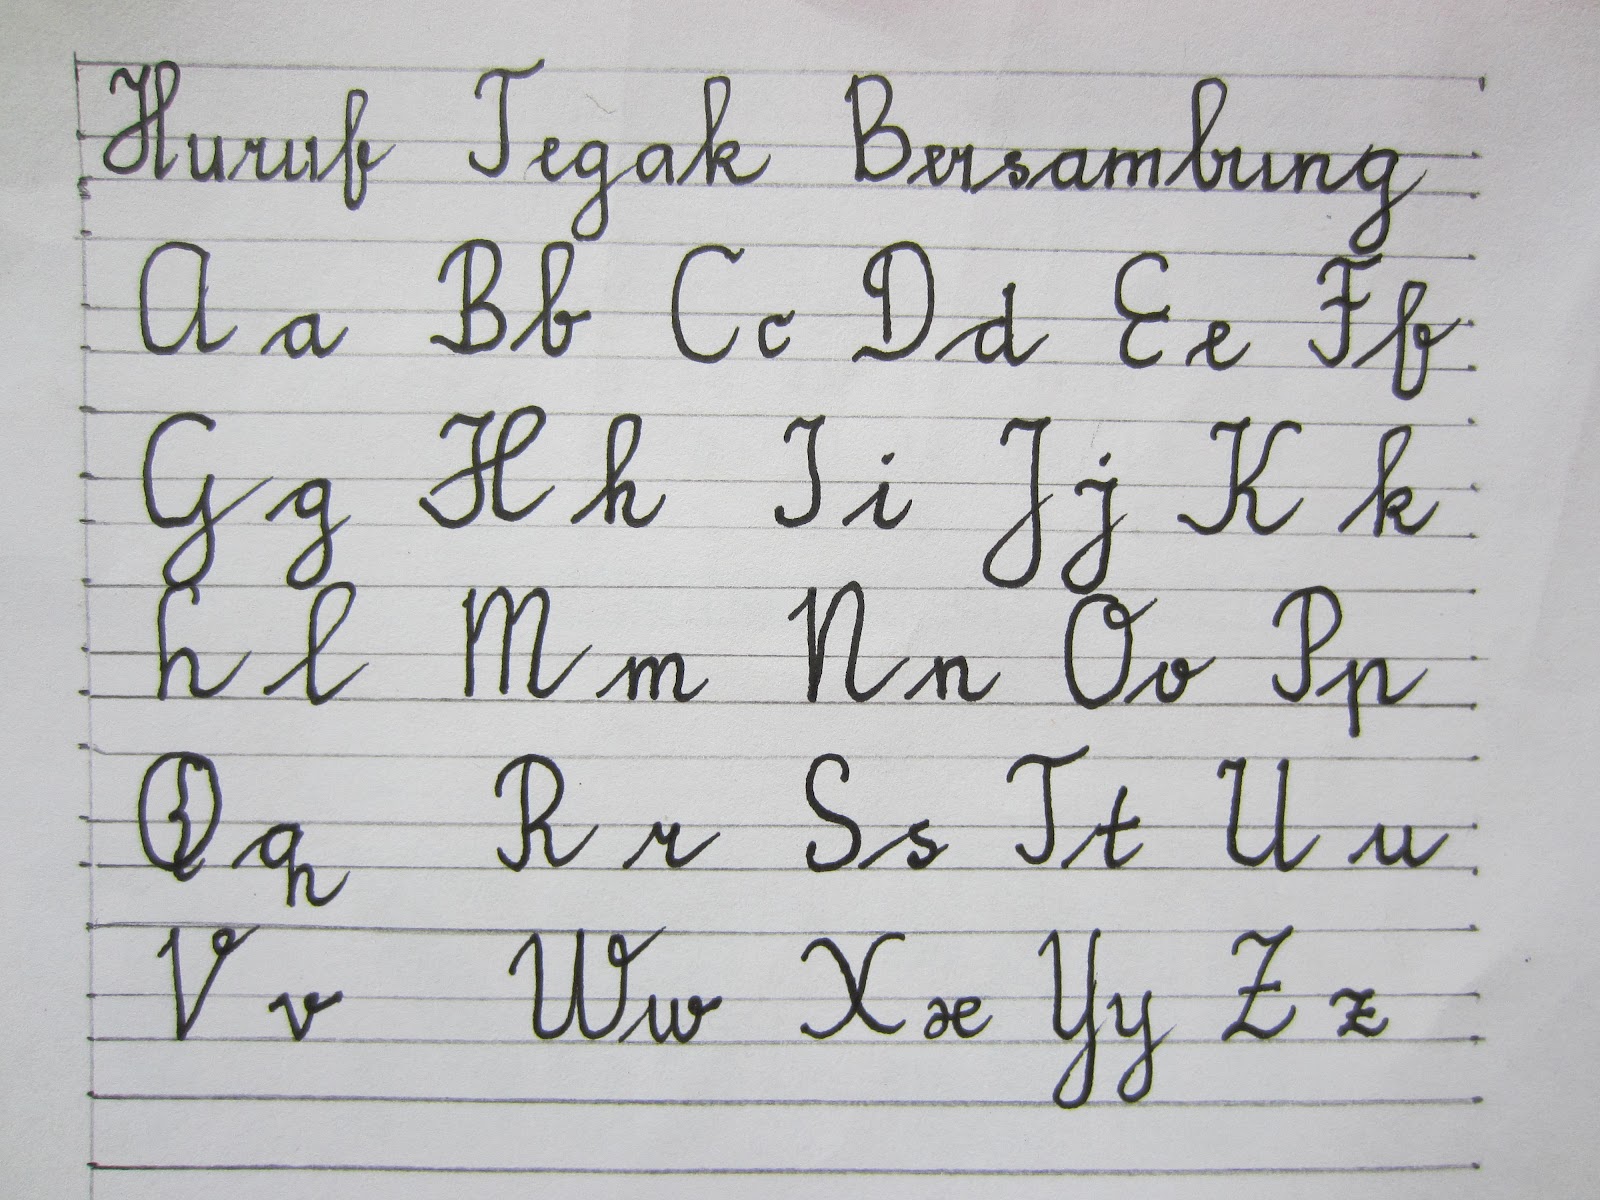 Huruf Tegak Bersambung
A a B b C c D d E e F f
G g H h I i J j K k
L l M m N n O o P p
Q q R r S s T t U u
V v W w X x Y y Z z